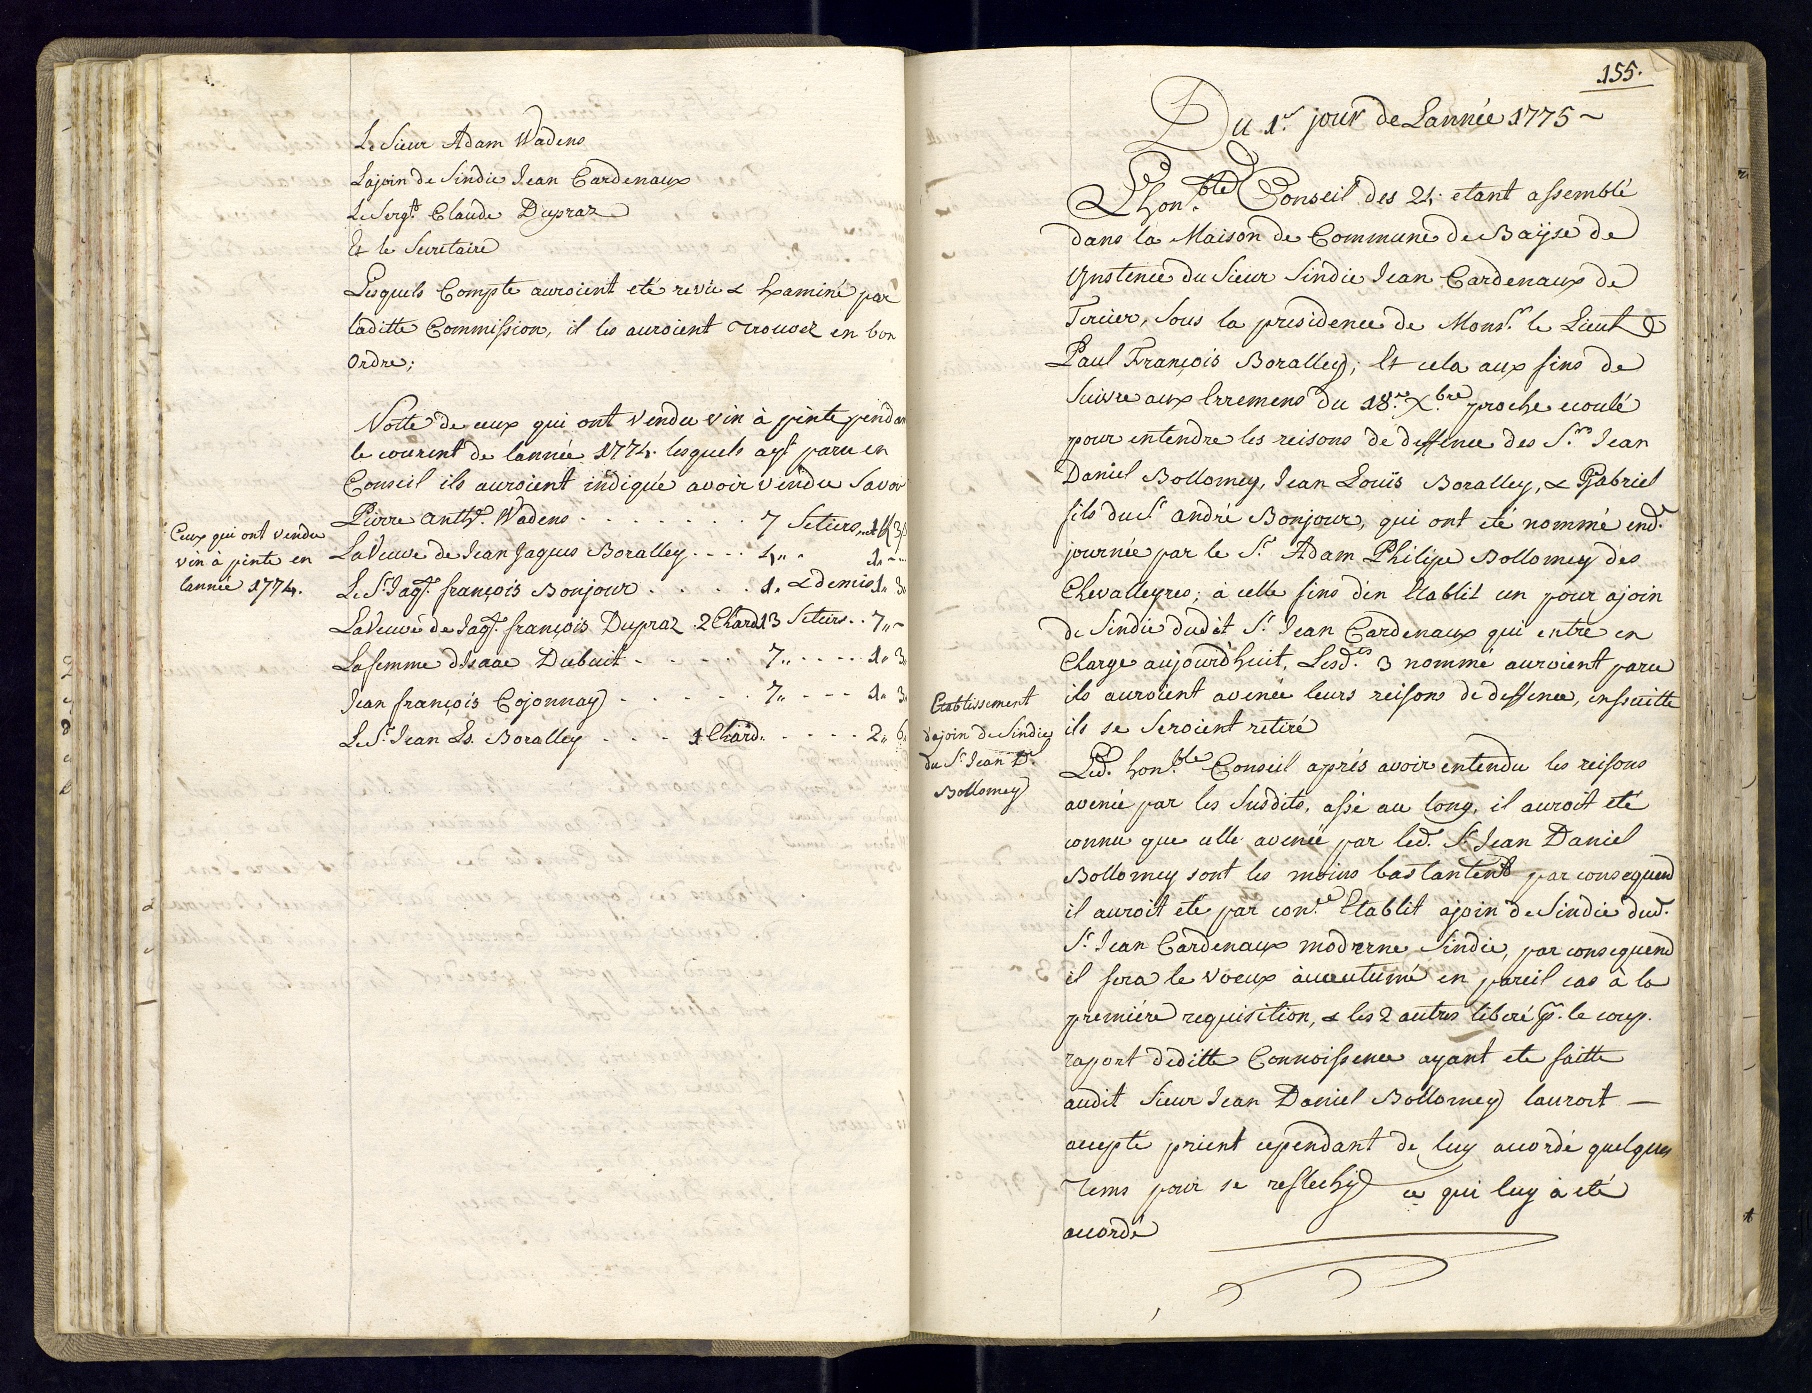 Le Sieur Adam Wadens
Lajoin de Sindic Jean Cardenaux
Le Sergt. Claude Dupraz
Et le Secretaire
Lesquels Compte auroient eté revû & Examiné par
laditte Commission, il les auroient Trouvez en bon
Ordre;
Notte de ceux qui ont vendu vin à pinte pendan
le courent de lannée 1774. lesquels ayt paru en
Conseil ils auroient indiqué avoir vendu Savoir
Pierre Anth.e Wadens . . . . . . . 7 Setiers
La Veuve de Jean Jaques Boralley . . . . 4 „ . 1 „ -
Le Sr. Jaq.s françois Bonjour . . . . . 1. & demis 1 „ 3
La Veuve de Jaq.s françois Dupraz 2 Chard 13 Setiers . . 7 „ -
La femme disaac Dubuit . . . . . 7 „ . . . . 1 „ 3
Jean françois Cojonnay . . . . . . 7 „ - - - - 1 „ 3
Le Sr. Jean Ls. Boralley . . . . 1 Chard. . . . . . 2 „ 6
Ceux qui ont vendu
vin à pinte en
lannée 1774.
155.
Du 1.r jour de Lannée 1775 ~
Lhon.ble Conseil des 24. etant assemblé
dans la Maison de Commune de Bayse de
Ynstence du Sieur Sindic Jean Cardenaux de
Tercier, Sous la presidence de Mons.r le Lieut
Paul François Boralley; Et cela aux fins de
Suivre aux Erremens du 18.e X.bre proche ecoulé
pour entendre les reisons de deffence des S.rs Jean
Daniel Bollomey, Jean Louïs Boralley, & Gabriel
fils du Sr andré Bonjour, qui ont eté nommé end.e
journée par le S.r Adam Philipe Bollomey des
Chevalleyres; à celle fins d'en Etablit un pour ajoin
de Sindic dudit S.r Jean Cardenaux qui entre en
Charge aujourdhuit, Lesd.ts 3 nommé auroient paru
ils auroient avenée leurs reisons de deffence, ensuitte
ils se Seroient retiré
Etablissement
dajoin de Sindic
du Sr. Jean D.l
Bollomey
Led. hon.ble Conseil aprés avoir entendu les reisons
avenée par les Susdits, assé au long, il auroit eté
connu que celle avenée par led. Sr. Jean Daniel
Bollomey sont les moins bastantent par consequend
il auroit ete par con.ce Etablit ajoin de Sindic dud.
S.r Jean Cardenaux moderne Sindic, par consequend
il fera le voeux accoutumé en pareil cas à la
premiére requisition, & les 2 autres liberé p. le coup.
raport deditte Connoissence ayant ete faitte
audit Sieur Jean Daniel Bollomey lauroit —
accepté prient cependant de luy accordé quelques
Tems pour se reflechy ce qui luy à eté
accordé